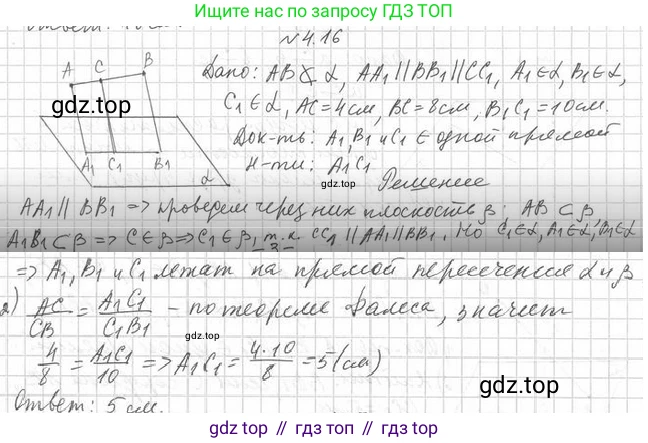 Ищите нас по запросу ГДЗ ТОП
№4.16
Дано: AB ⊄ α, AA₁ ∥ BB₁ ∥ CC₁, A₁∈α, B₁∈α,
C₁∈α, AC=4см, BC=8см, B₁C₁=10см.
Док-ть: A₁, B₁ и C₁ ∈ одной прямой
Н-ти: A₁C₁
Решение
A C B
A₁ C₁ B₁
α
gdz.top
gdz.top
AA₁ ∥ BB₁ => проведем через них плоскость β; AB ⊂ β
A₁B₁⊂β => C∈β => C₁∈β, т.к. CC₁ ∥ AA₁ ∥ BB₁. Но C₁∈α, A₁∈α, B₁∈α
=> A₁, B₁ и C₁ лежат на прямой пересечения α и β
2) AC/CB = A₁C₁/C₁B₁ - по теореме Фалеса, значит
4/8 = A₁C₁/10 => A₁C₁ = 4·10/8 = 5(см)
gdz.top
Ответ: 5 см.
gdz.top // gdz.top // gdz.top